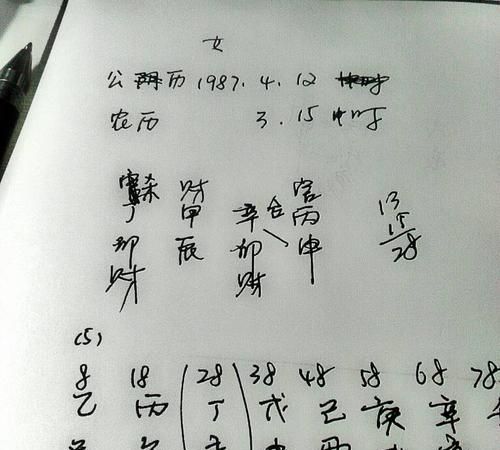 女
公历 1987. 4. 12
农历 3. 15 申时
杀 财 官
丁 甲 辛 合 丙 13
卯 辰 卯 申 15
财 财 28
(5)
8 18 28 38 48 58 68 78
乙 丙 丁 戊 己 庚 辛